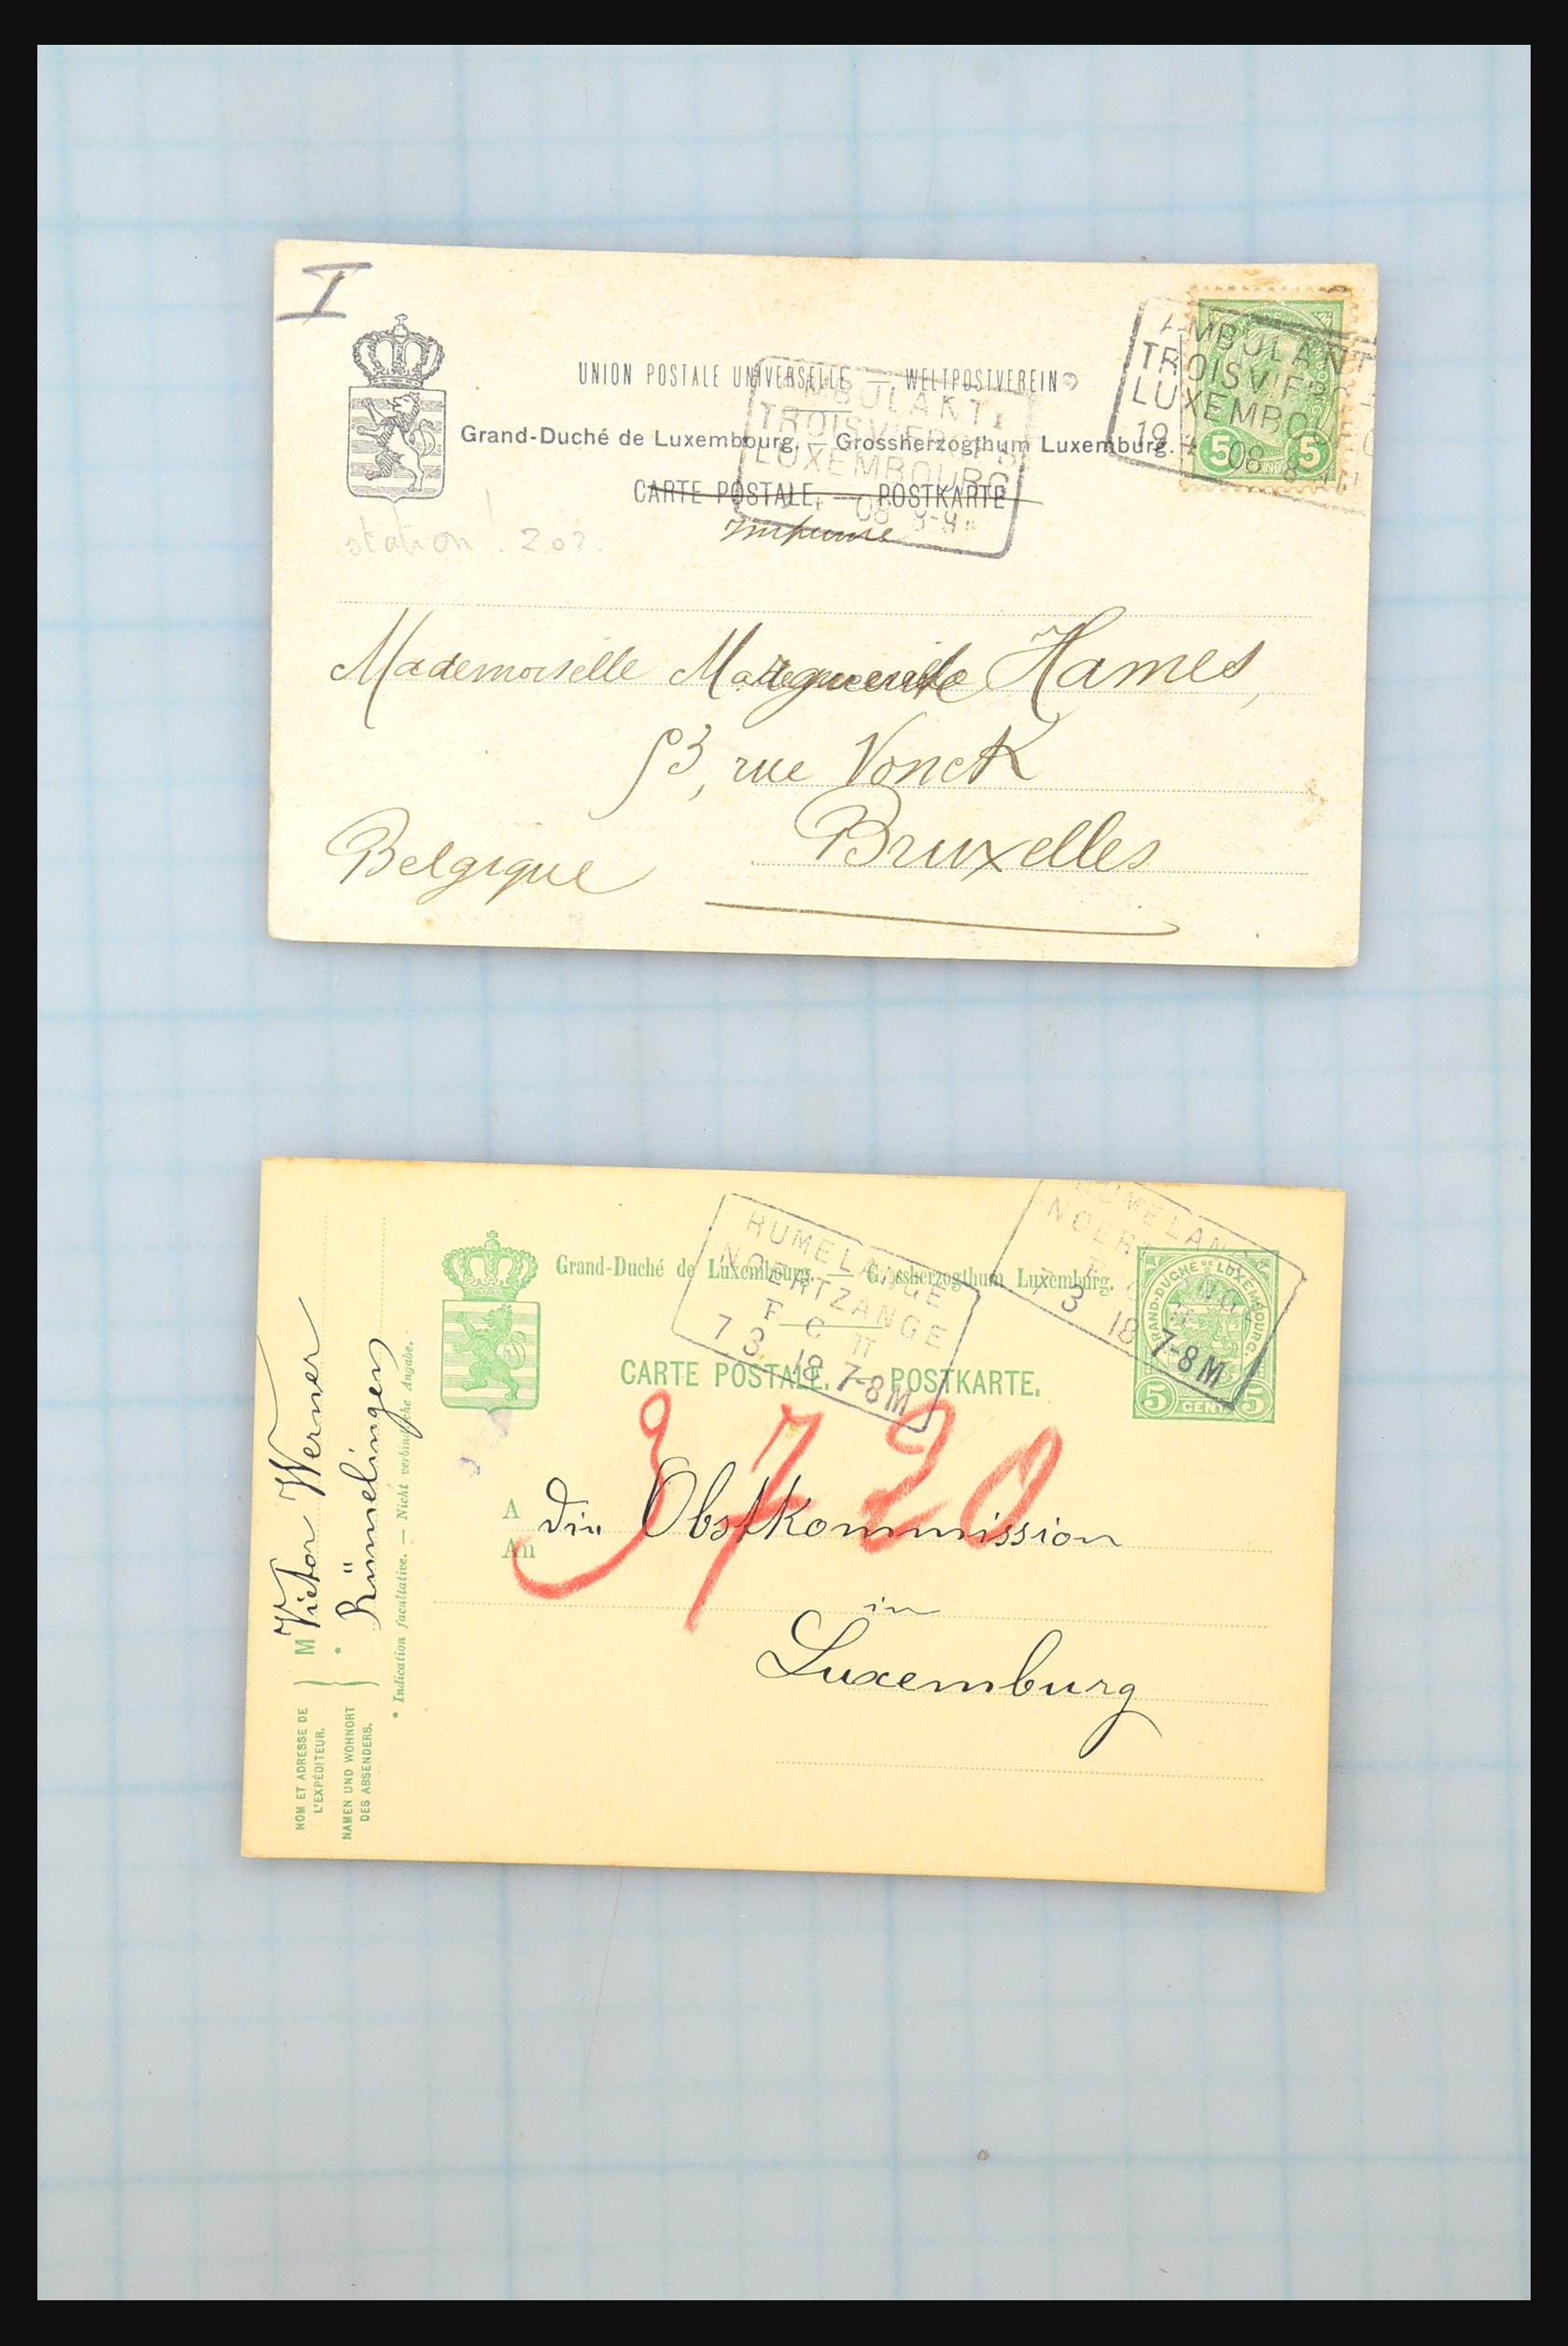 I
UNION POSTALE UNIVERSELLE — WELTPOSTVEREIN
Grand-Duché de Luxembourg. — Grossherzogthum Luxemburg.
CARTE POSTALE. — POSTKARTE
AMBULANT
TROISVIERGES
LUXEMBOURG
08 8-9
AMBULANT
TROISVIERG
LUXEMBOURG
19 4 08 8
5 5
station. 202.
Mademoiselle Marguerite Hames,
53, rue Vonck
Bruxelles
Belgique
Grand-Duché de Luxembourg. — Grossherzogthum Luxemburg.
CARTE POSTALE. — POSTKARTE.
RUMELANGE
NOERTZANGE
F C π
7 3 18 7-8M
RUMELANGE
NOERTZANGE
7 3 18 7-8M
GRAND-DUCHÉ DE LUXEMBOURG.
5 CENT. 5
3720
A
An
die Obstkommission
in
Luxemburg
NOM ET ADRESSE DE
L'EXPÉDITEUR.
NAMEN UND WOHNORT
DES ABSENDERS.
M Victor Werner
* Rümelingen
* Indication facultative. — Nicht verbindliche Angabe.